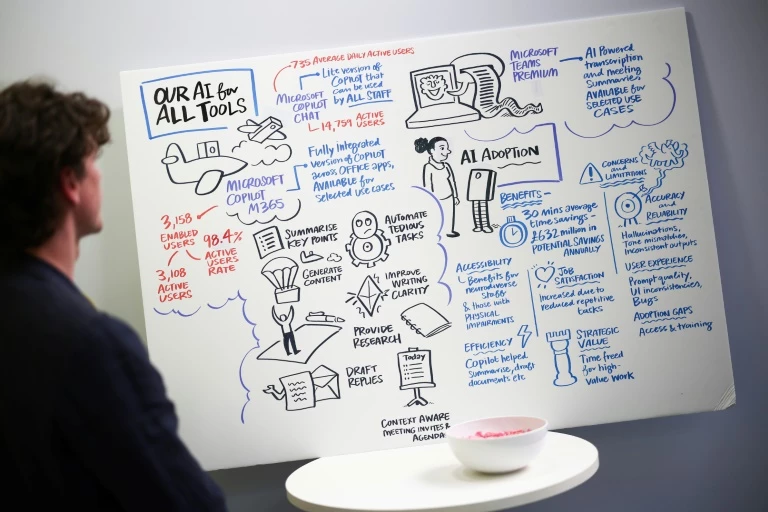 OUR AI for
ALL TOOLS
735 AVERAGE DAILY ACTIVE USERS
MICROSOFT
COPILOT
CHAT
Lite version of
COPILOT that
can be used
by ALL STAFF
14,759 ACTIVE
USERS
MICROSOFT
COPILOT
M365
Fully integrated
version of COPILOT
across OFFICE apps,
AVAILABLE for
selected use cases
3,158
ENABLED
USERS
98.4%
ACTIVE
USERS
RATE
3,108
ACTIVE
USERS
SUMMARISE
KEY POINTS
AUTOMATE
TEDIOUS
TASKS
GENERATE
CONTENT
IMPROVE
WRITING
CLARITY
PROVIDE
RESEARCH
DRAFT
REPLIES
Today
CONTEXT AWARE
MEETING INVITES &
AGENDA
MICROSOFT
TEAMS
PREMIUM
AI POWERED
transcription
and meeting
Summaries,
AVAILABLE for
SELECTED USE
CASES
AI ADOPTION
BENEFITS
30 mins average
time savings -
£632 million in
POTENTIAL SAVINGS
ANNUALLY
ACCESSIBILITY
Benefits for
neurodiverse
staff
& those with
PHYSICAL
IMPAIRMENTS
JOB
SATISFACTION
Increased due to
reduced repetitive
tasks
EFFICIENCY
Copilot helped
summarise, draft
documents etc
STRATEGIC
VALUE
Time freed
for high-
value work
CONCERNS
and
LIMITATIONS
ACCURACY
and
RELIABILITY
Hallucinations,
Tone mismatches,
inconsistent outputs
USER EXPERIENCE
Prompt quality,
UI inconsistencies,
Bugs
ADOPTION GAPS
Access & training